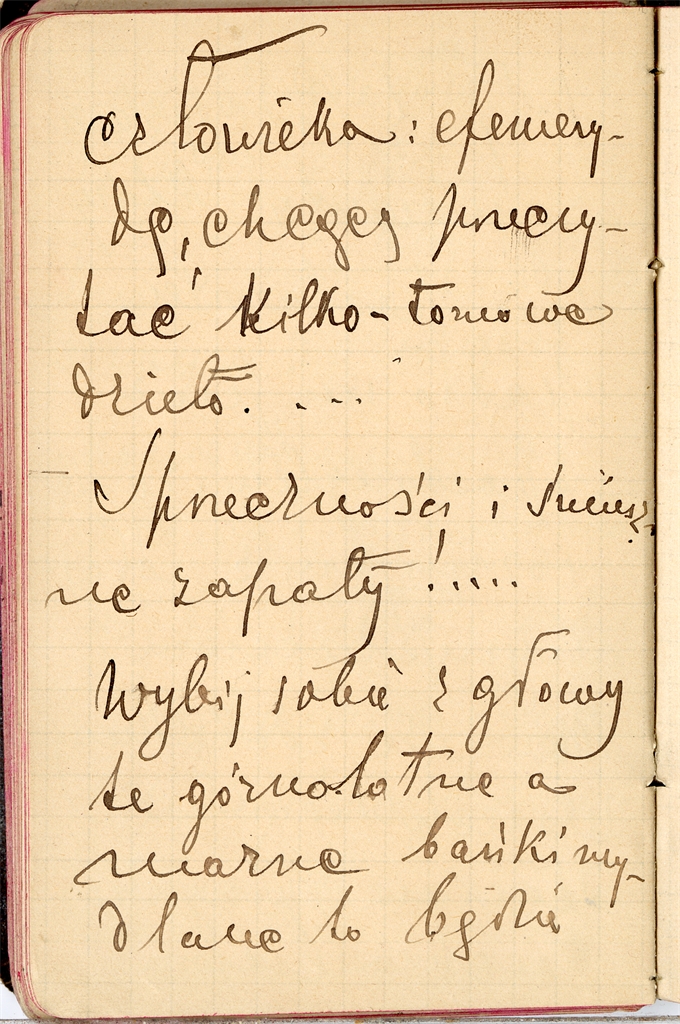 człowieka: efemery-
dę, chcącą przeczy-
tać kilko-tomowe
dzieło. . ...
Sprzeczności i śmiesz-
ne zapały!.....
Wybij sobie z głowy
te górnolotne a
marne bańki my-
dlane to będzie